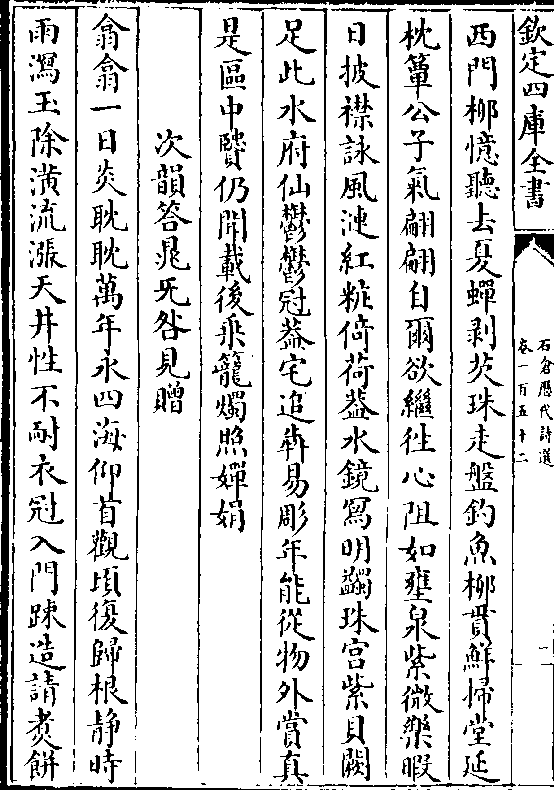 欽定四庫全書
石倉歷代詩選
卷一百五十二
西門柳憶聽去夏蟬剥芡珠走盤釣魚柳貫鮮掃堂延
枕簟公子氣翩翩自爾欲繼徃心阻如壅泉紫微樂暇
日披襟詠風漣紅粧倚荷葢水鏡寫明蠲珠宫紫貝闕
足此水府仙鬱鬱冠葢宅追奔易彫年能從物外賞真
是區中賢仍聞載後乗籠燭照嬋娟
次韻答晁无咎見贈
翕翕一日炎耽耽萬年永四海仰首觀頃復歸根静時
雨瀉玉除潢流漲天井性不耐衣冠入門踈造請煑餅